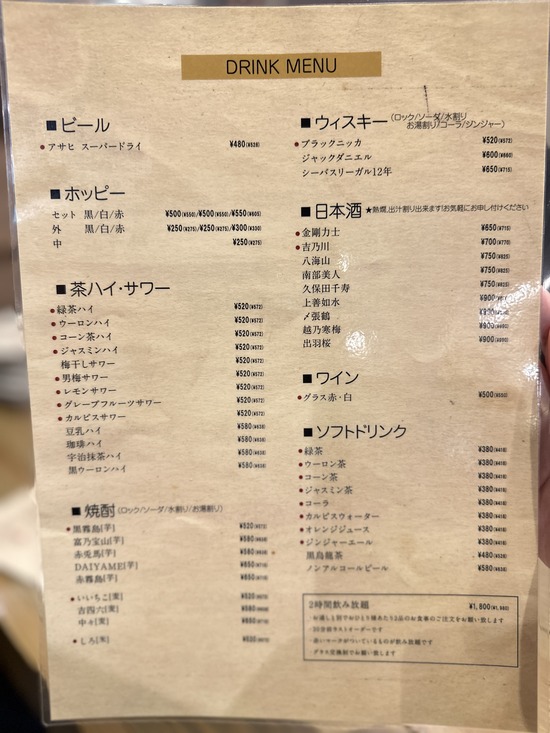 DRINK MENU
■ビール
●アサヒ スーパードライ ¥480(¥528)
■ホッピー
セット 黒/白/赤 ¥500(¥550)/¥500(¥550)/¥550(¥605)
外 黒/白/赤 ¥250(¥275)/¥250(¥275)/¥300(¥330)
中 ¥250(¥275)
■茶ハイ・サワー
●緑茶ハイ ¥520(¥572)
●ウーロンハイ ¥520(¥572)
●コーン茶ハイ ¥520(¥572)
●ジャスミンハイ ¥520(¥572)
梅干しサワー ¥520(¥572)
●男梅サワー ¥520(¥572)
●レモンサワー ¥520(¥572)
●グレープフルーツサワー ¥520(¥572)
●カルピスサワー ¥520(¥572)
豆乳ハイ ¥580(¥638)
珈琲ハイ ¥580(¥638)
宇治抹茶ハイ ¥580(¥638)
黒ウーロンハイ ¥580(¥638)
■焼酎(ロック/ソーダ/水割り/お湯割り)
●黒霧島[芋] ¥520(¥572)
富乃宝山[芋] ¥580(¥638)
赤兎馬[芋] ¥580(¥638)
DAIYAME[芋] ¥650(¥715)
赤霧島[芋] ¥650(¥715)
●いいちこ[麦] ¥520(¥572)
吉四六[麦] ¥580(¥638)
中々[麦] ¥650(¥715)
●しろ[米] ¥520(¥572)
■ウィスキー(ロック/ソーダ/水割り
お湯割り/コーラ/ジンジャー)
●ブラックニッカ ¥520(¥572)
ジャックダニエル ¥600(¥660)
シーバスリーガル12年 ¥650(¥715)
■日本酒 ★熱燗、出汁割り出来ます!お気軽にお申し付けください
●金剛力士 ¥650(¥715)
●吉乃川 ¥700(¥770)
八海山 ¥750(¥825)
南部美人 ¥750(¥825)
久保田千寿 ¥750(¥825)
上善如水 ¥900
〆張鶴
越乃寒梅 ¥900(¥990)
出羽桜 ¥900(¥990)
■ワイン
●グラス赤・白 ¥500(¥550)
■ソフトドリンク
●緑茶 ¥380(¥418)
●ウーロン茶 ¥380(¥418)
●コーン茶 ¥380(¥418)
●ジャスミン茶 ¥380(¥418)
●コーラ ¥380(¥418)
●カルピスウォーター ¥380(¥418)
●オレンジジュース ¥380(¥418)
●ジンジャーエール ¥380(¥418)
黒烏龍茶 ¥480(¥528)
ノンアルコールビール ¥580(¥638)
2時間飲み放題 ¥1,800(¥1,980)
・お通し1別でおひとり様あたり2品のお食事のご注文をお願い致します
・30分前ラストオーダーです
・赤いマークがついているものが飲み放題です
・グラス交換制でお願い致します